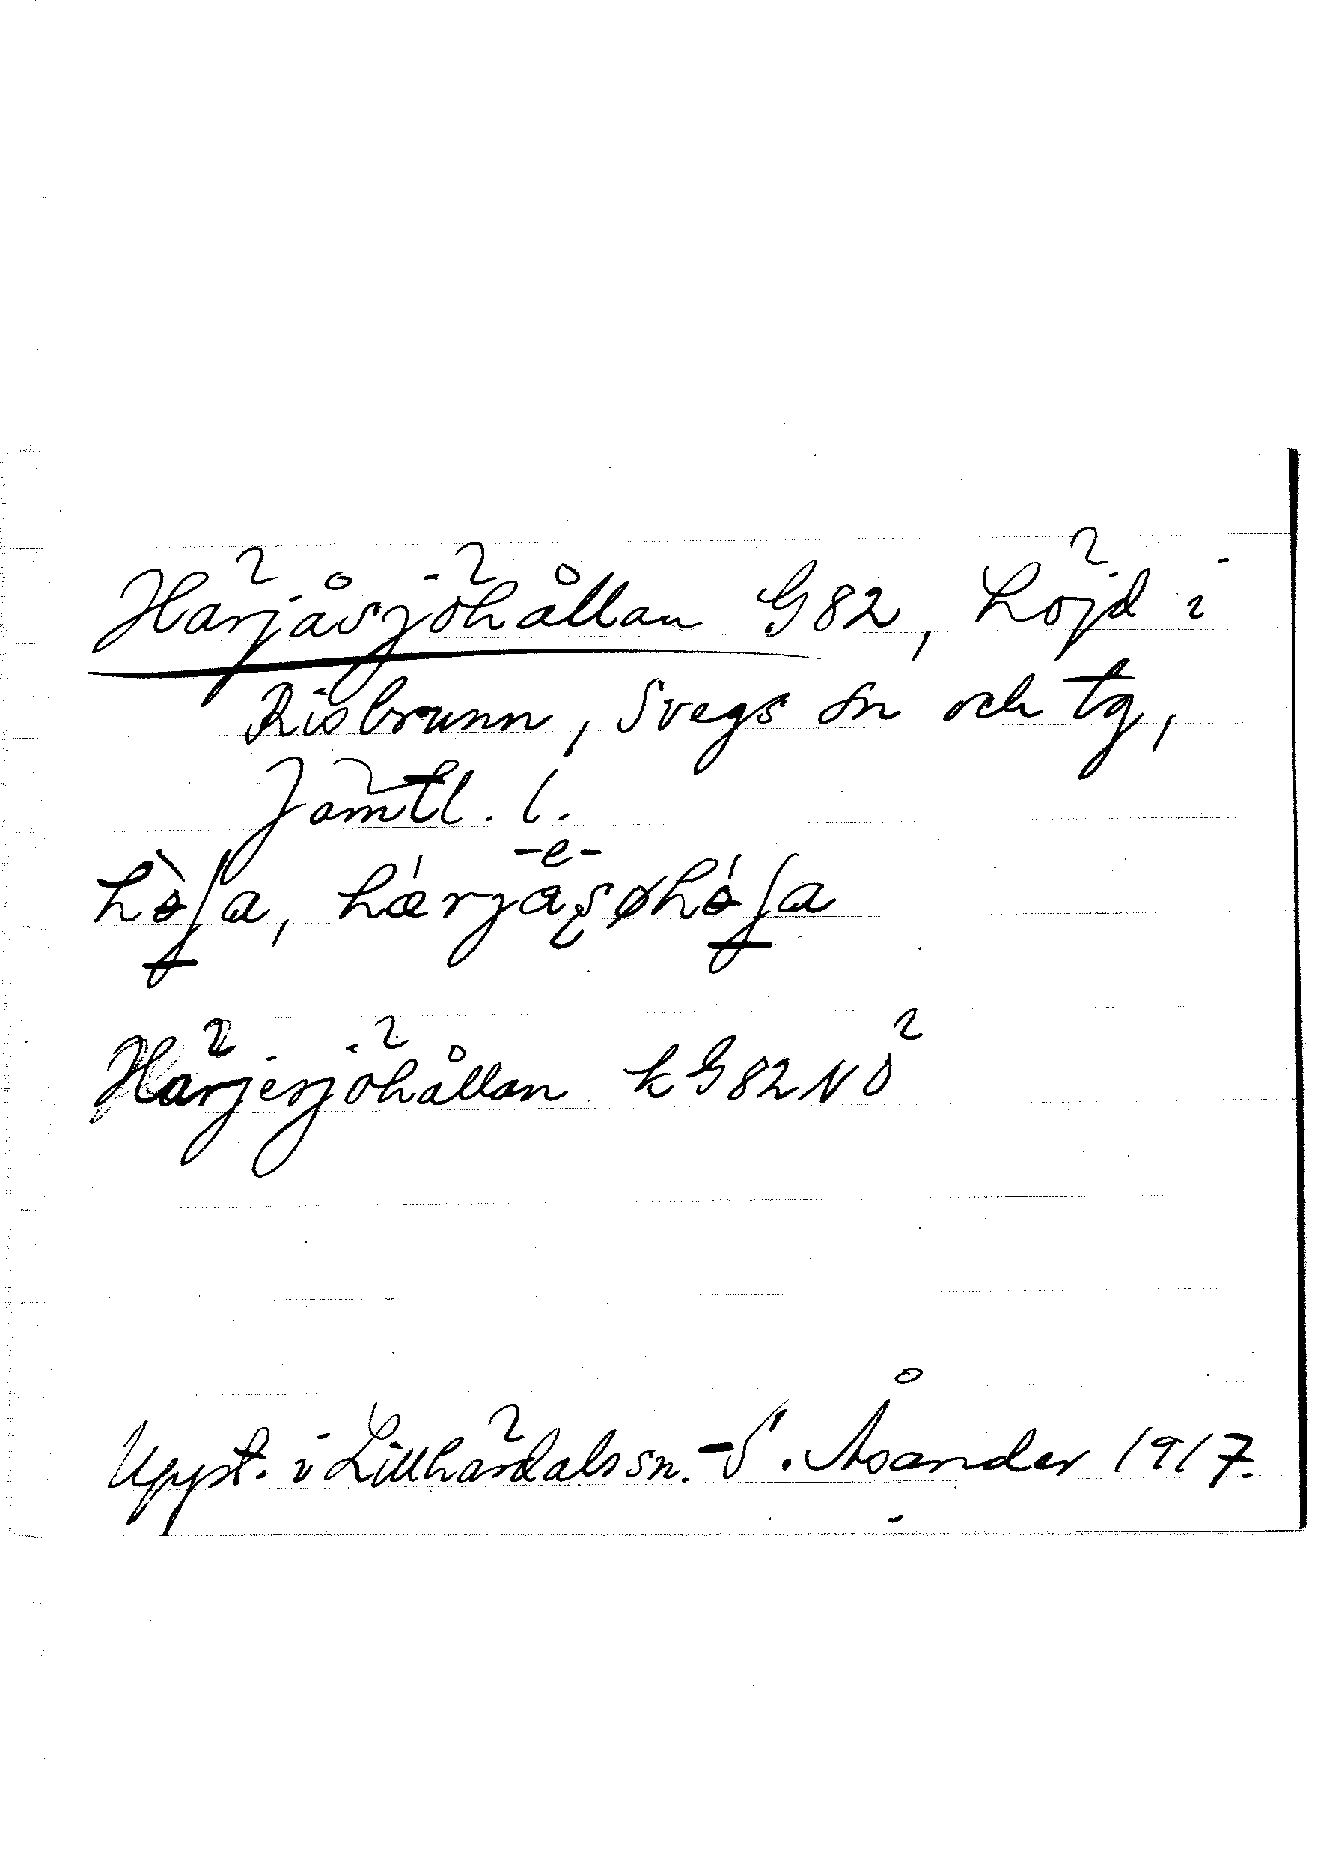 Härjåsjöhållan G82, höjd i
Risbrunn, Svegs sn och tg,
Jämtl. l.
-e-
Härjesjöhållan kG82NÖ
Uppt. i Lillhärdals sn. - S. Åsander 1917.